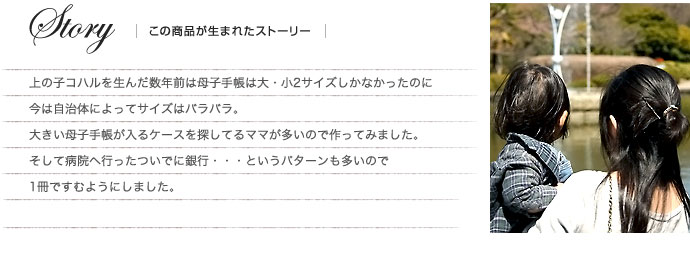 Story
この商品が生まれたストーリー
上の子コハルを生んだ数年前は母子手帳は大・小2サイズしかなかったのに
今は自治体によってサイズはバラバラ。
大きい母子手帳が入るケースを探してるママが多いので作ってみました。
そして病院へ行ったついでに銀行・・・というパターンも多いので
1冊ですむようにしました。